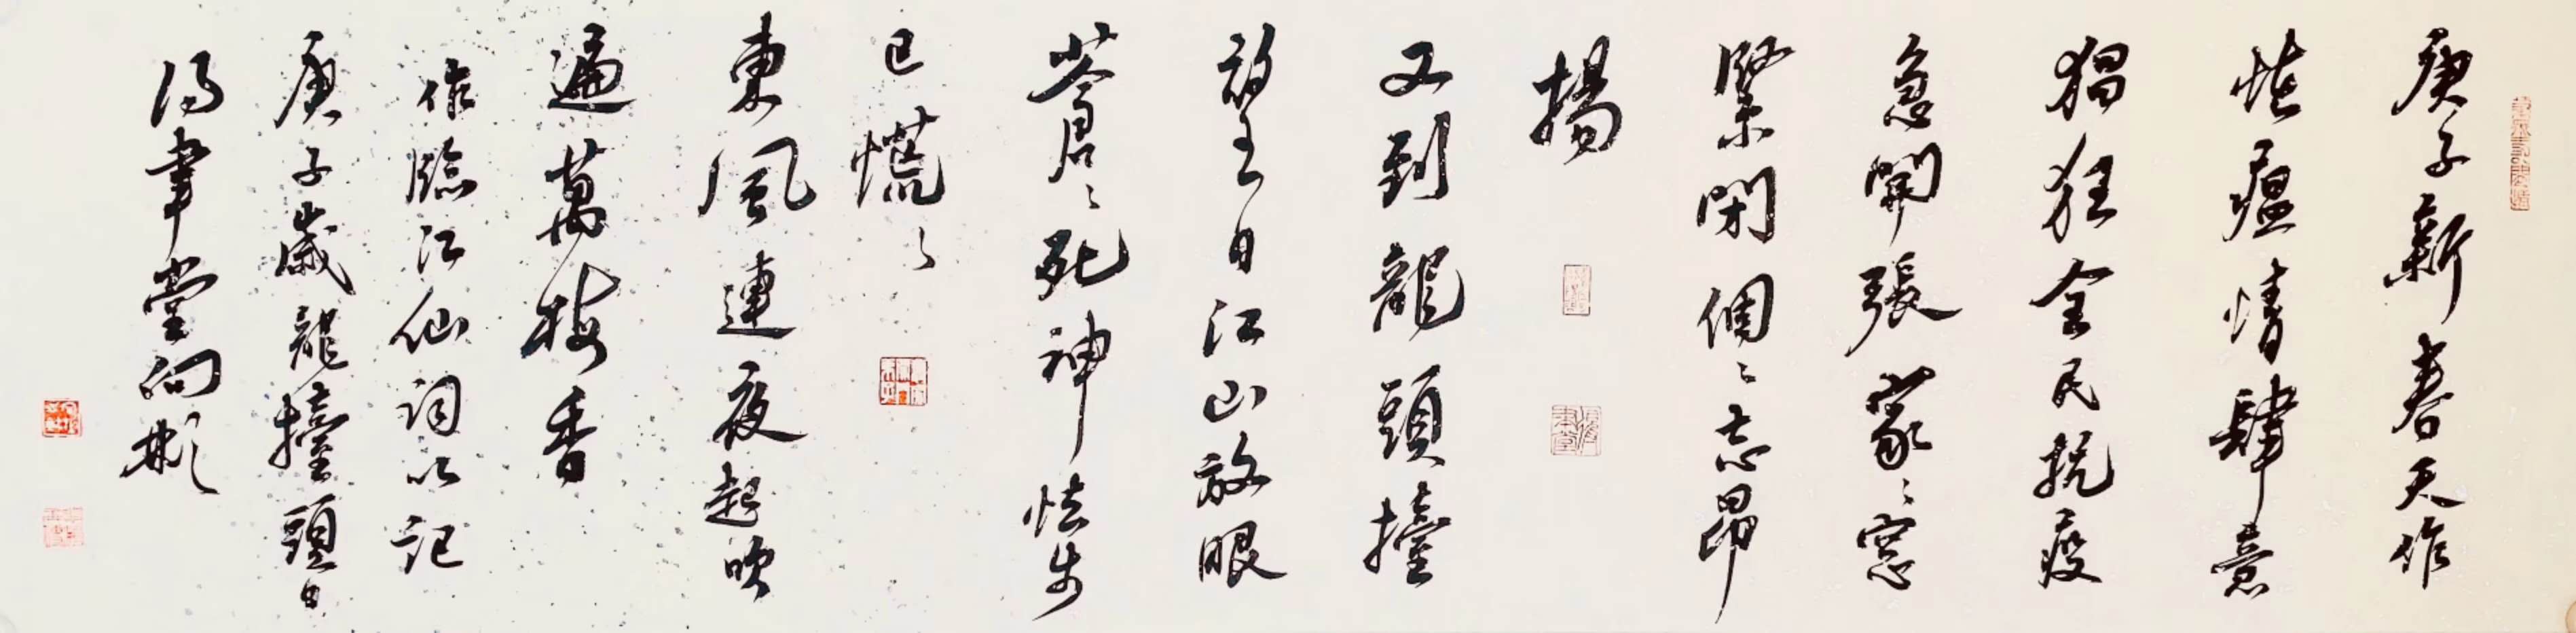 庚子新春天作
怪瘟情肆意
猖狂全民抗疫
急開張家〻窓
緊閉個〻志昂
揚
又到龍頭擡
望日江山放眼
蒼〻死神怯步
已慌〻
東風連夜起吹
遍萬梅香
作臨江仙詞以記
庚子歲龍擡頭日
得聿堂向彬